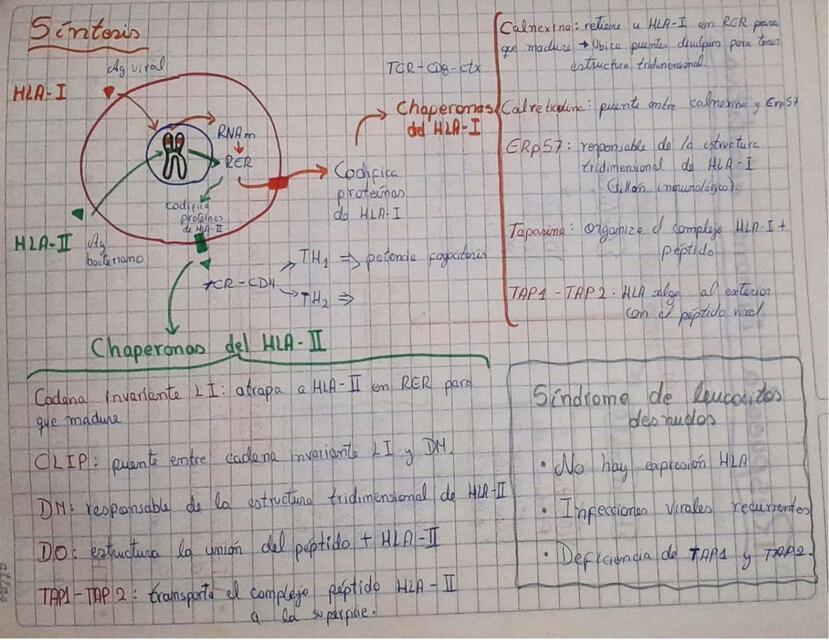 Síntesis
Ag viral
HLA-I
RNAm
RER
codifica
proteínas
de HLA-II
HLA-II
Ag
bacteriano
TCR-CD8-ctx
Chaperonas
del HLA-I
Codifica
proteínas
de HLA-I
TCR-CD4
TH1 ⇒ potencia fagocitosis
TH2 ⇒
Calnexina: retiene a HLA-I en RER para
que madure → Ubica puentes disulfuro para tener
estructura tridimensional.
Calreticulina: puente entre calnexina y Erp57
ERp57: responsable de la estructura
tridimensional de HLA-I
(sillón inmunológico).
Tapasina: Organiza el complejo HLA-I +
péptido
TAP1-TAP2: HLA salga al exterior
con el péptido viral.
Chaperonas del HLA-II
Cadena invariante LI: atrapa a HLA-II en RER para
que madure
CLIP: puente entre cadena invariante LI y DM.
DM: responsable de la estructura tridimensional de HLA-II
DO: estructura la unión del péptido + HLA-II
TAP1-TAP2: transporta el complejo péptido HLA-II
a la superficie.
Síndrome de leucocitos
desnudos
• No hay expresión HLA
• Infecciones virales recurrentes
• Deficiencia de TAP1 y TAP2.